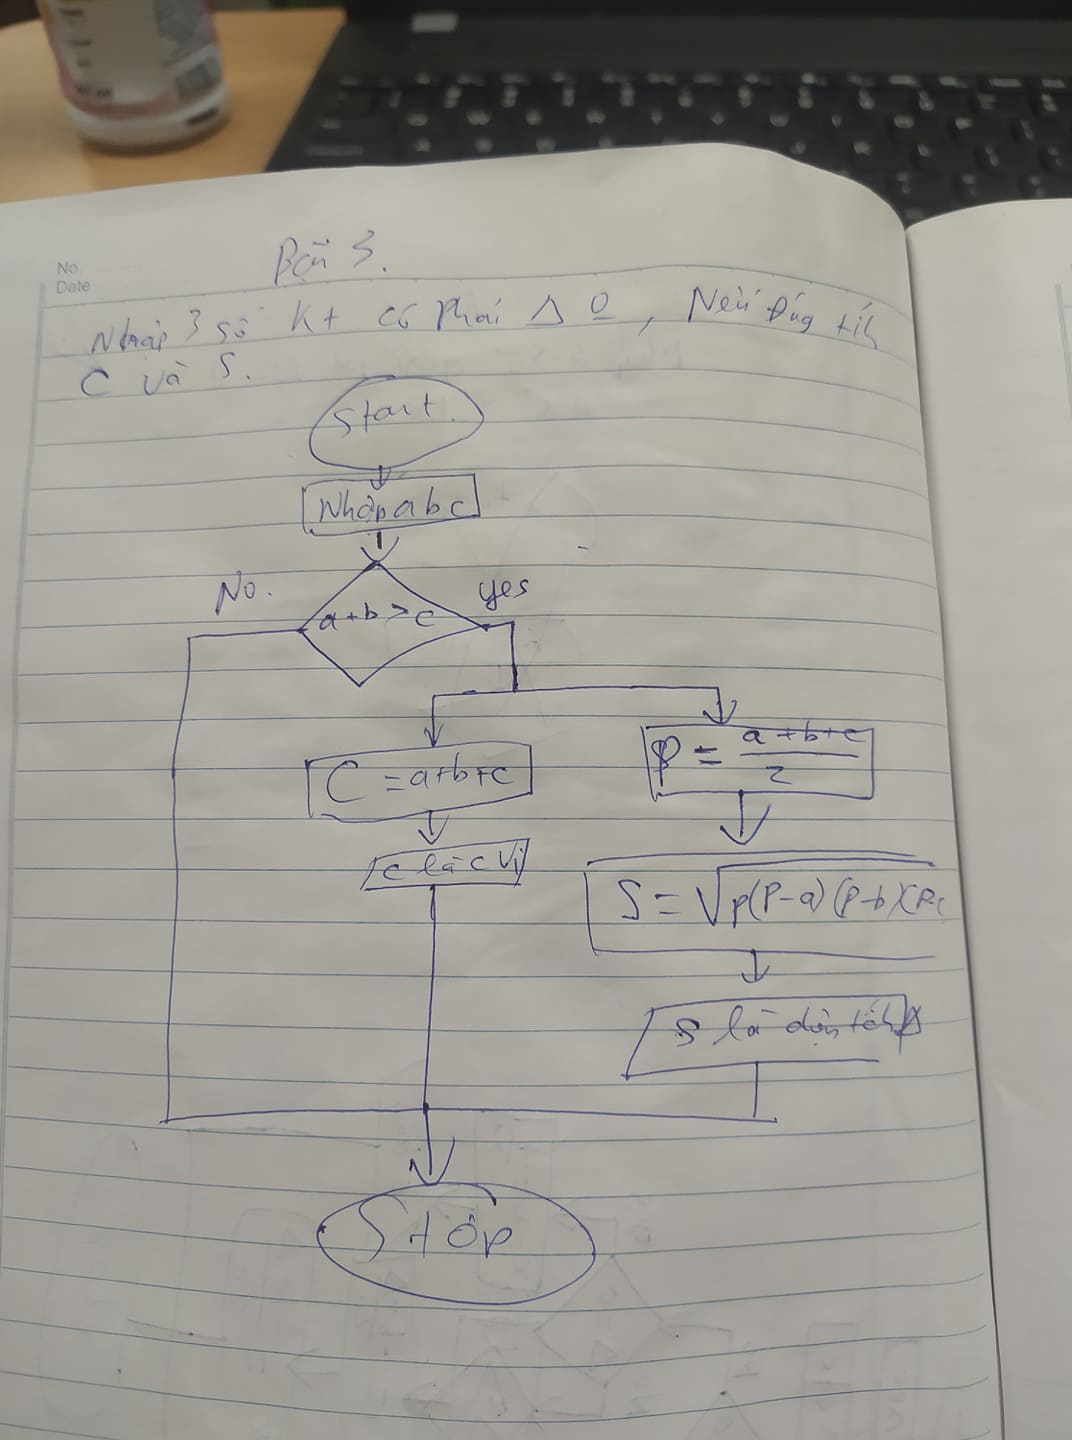 No
Date
Bài 3.
Nhập 3 số kt có phải Δ 0, Nếu đúng tính
C và S.
Start.
Nhập a b c
No.
yes
a+b>c
C = a+b+c
P = a+b+c / 2
C là CVi
S = √p(P-a)(P-b)(P-c
S là diện tích Δ
Stop